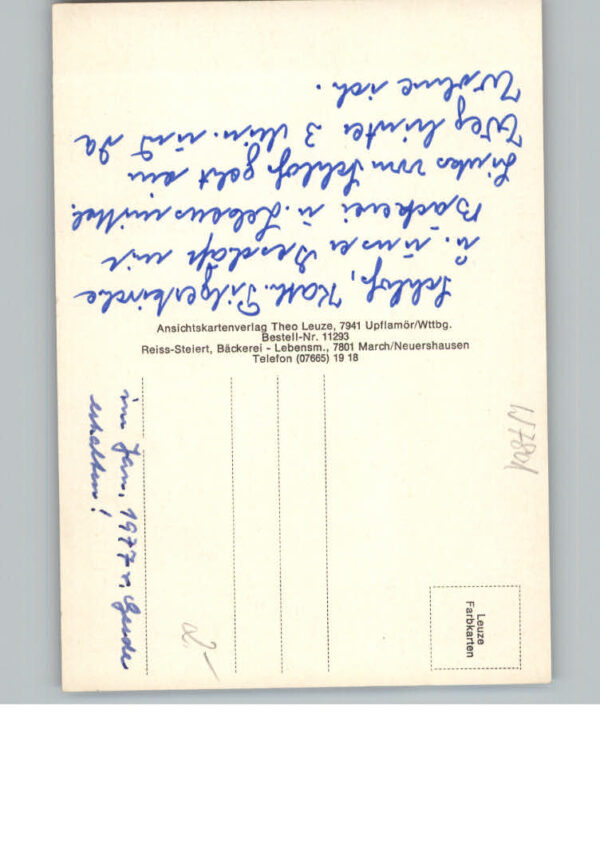 Schloß, Kath. Pilgerkirche
u. unser Geschäft mit
Backerei u. Lebensmittel.
Links vom Schloß geht ein
Weg hinter 3 Min. und da
Wohne ich.
Ansichtskartenverlag Theo Leuze, 7941 Upflamör/Wttbg.
Bestell-Nr. 11293
Reiss-Steiert, Bäckerei - Lebensm., 7801 March/Neuershausen
Telefon (07665) 19 18
im Jan. 1977 v. Gerda
erhalten!
W7801
2.-
Leuze
Farbkarten